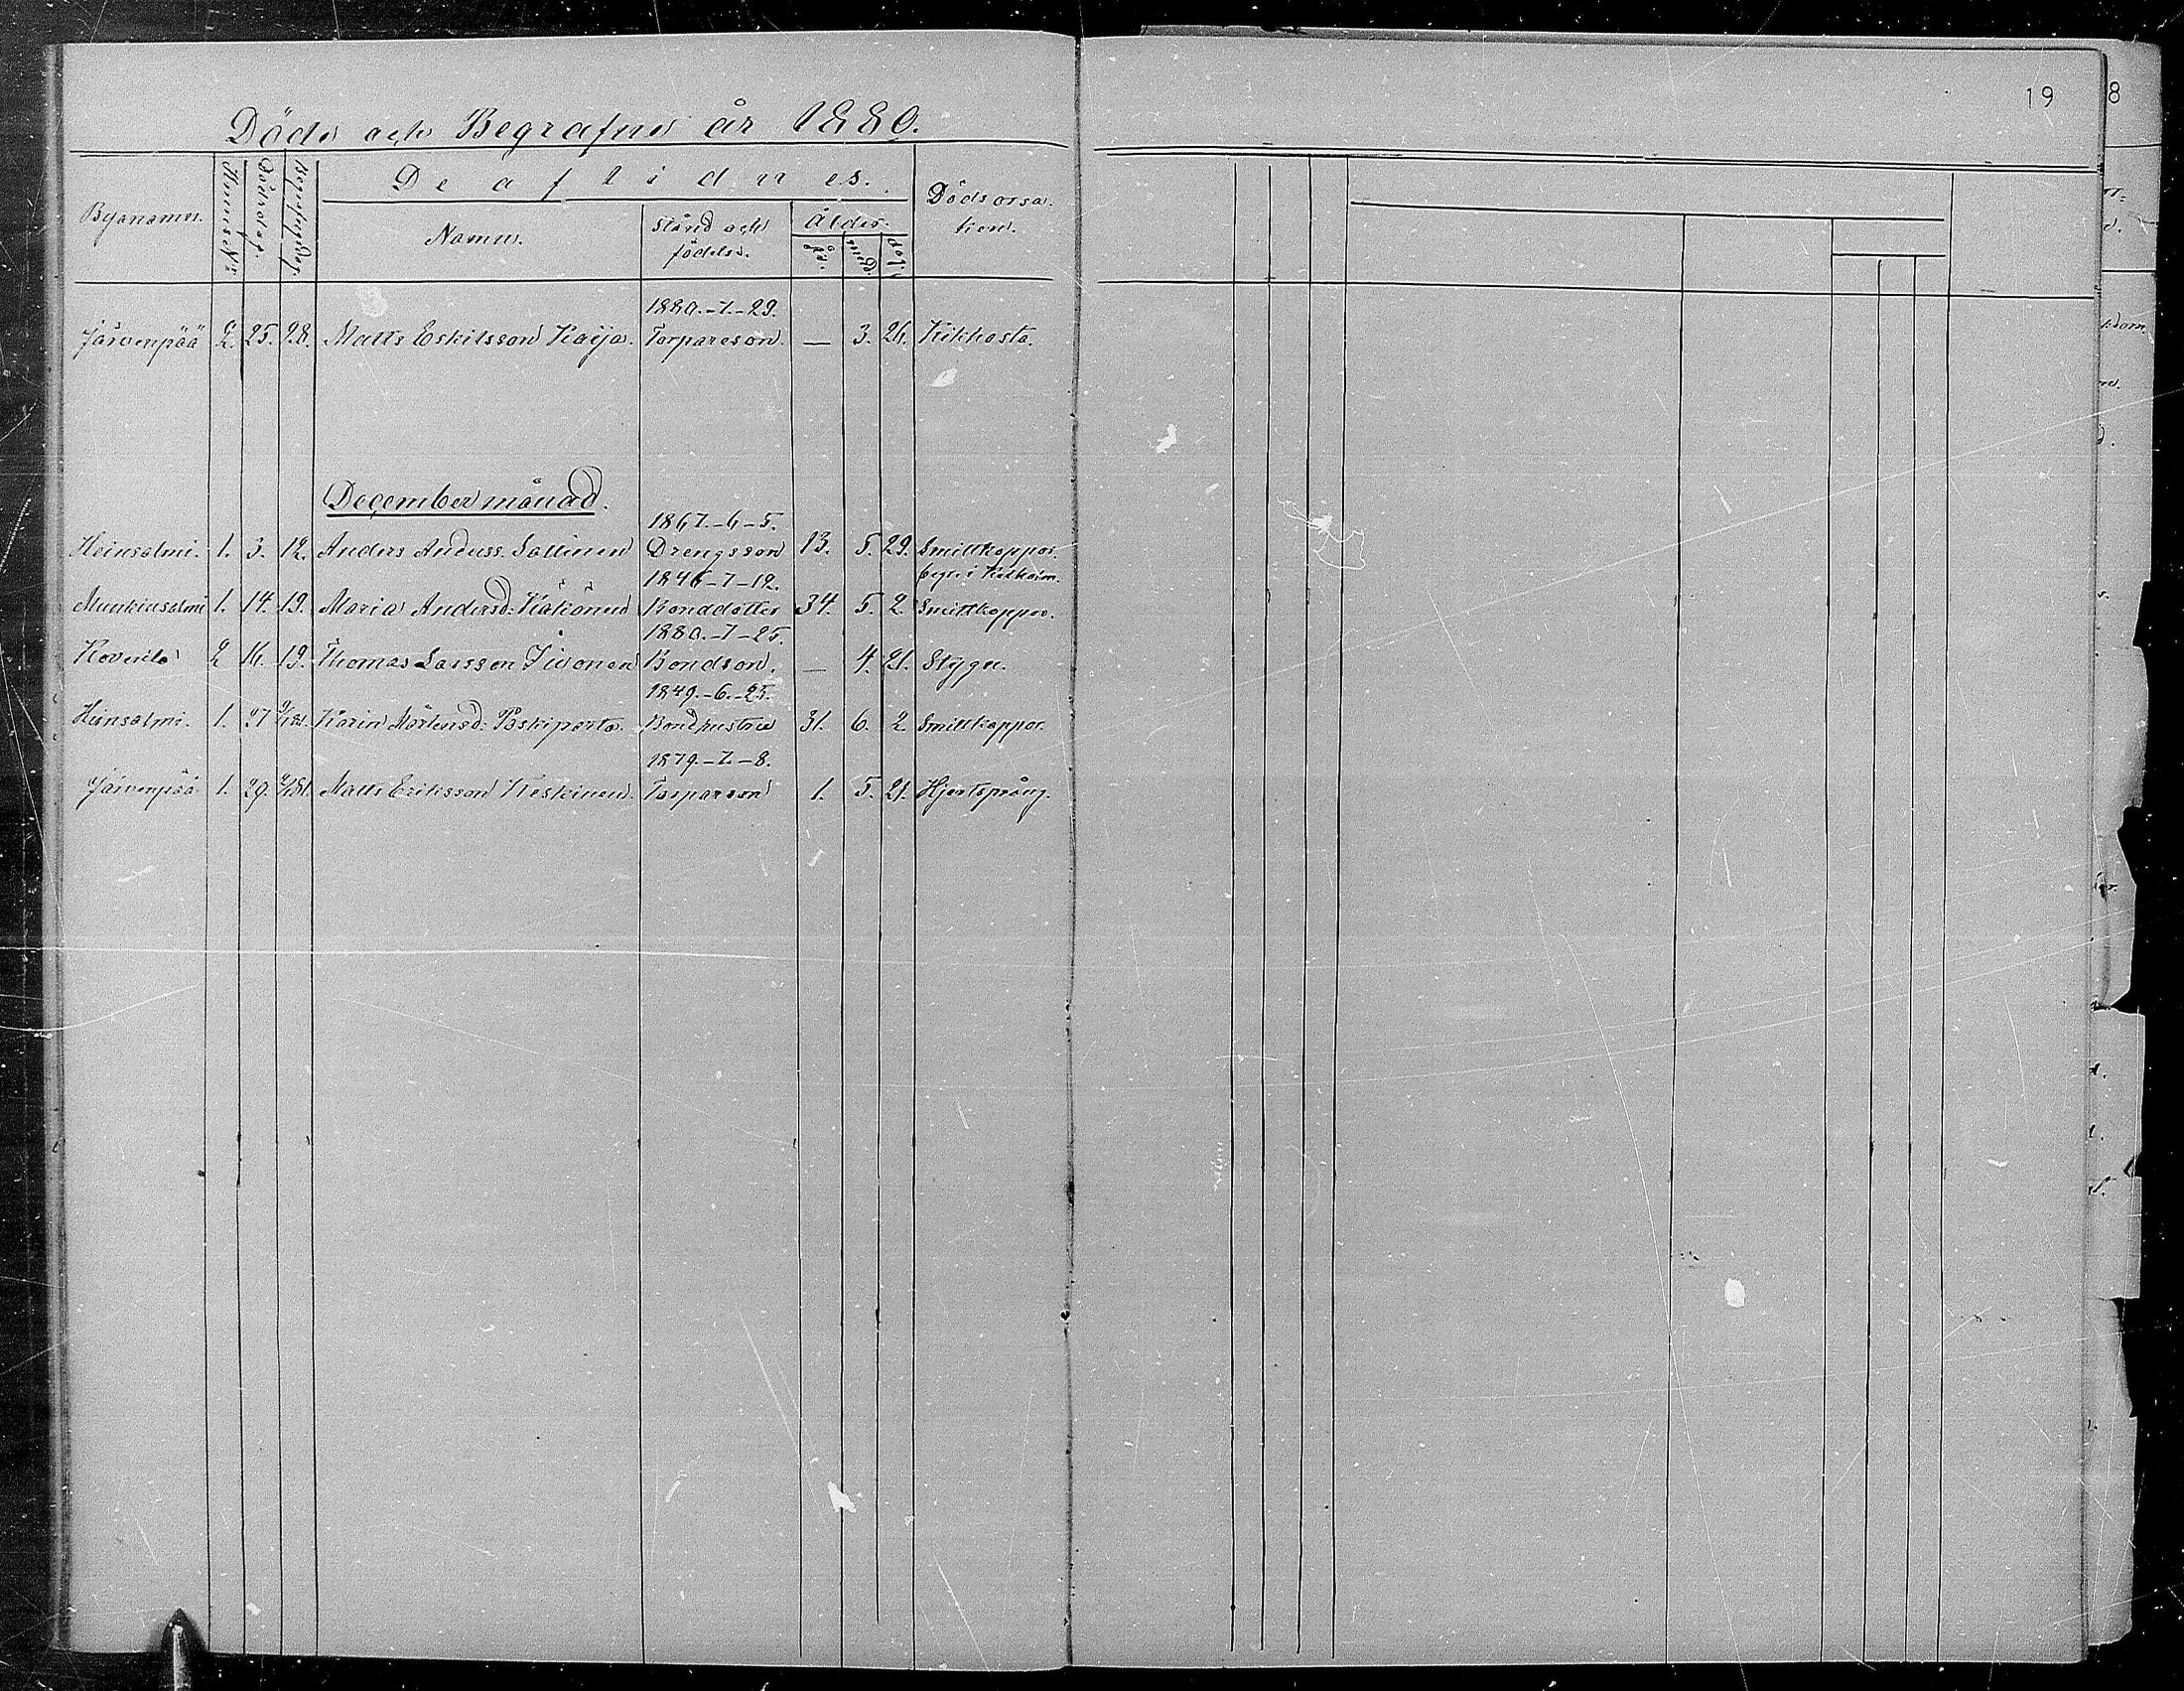 19 8
Döde och Begrafne år 1880.
Byanamn. Hemma No Dödsdag. Begrafn.dag. De aflidnes. Dödsorsaken.
Namn. Stånd och födelse. Ålder.
år. mån. dag.
1880.-7.-29.
Järvenpää 2. 25. 28. Matts Eskilsson Kaija. Torpareson. — 3. 26. Kikhosta.
December månad.
1867.-6-5.
Heinsalmi. 1. 3. 12. Anders Anderss. Sallinen Drengsson 13. 5. 29. Smittkoppor.
1846-7-12. begr. i Kexholm.
Munkinsalmi 1. 14. 19. Maria Andersd: Käkönen Bonddotter 34. 5. 2. Smittkoppor.
1880.-7-25.
Koverila 2 16. 19. Thomas Larsson Sivonen Bondson. — 4. 21. Slag.
1849.-6.-25.
Heinsalmi. 1. 27 Karin Mårtensd: Paskiparta. Bondhustru 31. 6. 2. Smittkoppor.
1879.-7.-8.
Järvenpää 1. 29. Matts Eriksson Keskinen. Torparson 1. 5. 21. Hjertsprång.